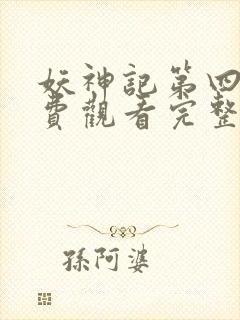 妖神記第四
費觀看完整
孫阿婆